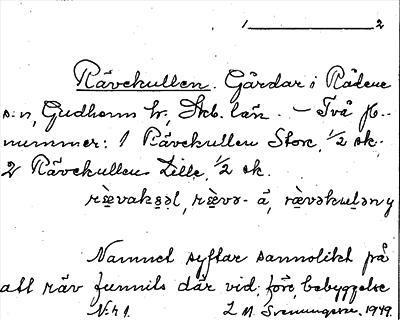 1 2
Rävekullen. Gårdar i Rådene
s:n, Gudhems hd, Skb. län. – Två jb.-
nummer: 1 Rävekullen Store, 1/2 sk.
2 Rävekullen Lille, 1/2 sk.
Namnet syftar sannolikt på
att räv funnits där vid, före, bebyggelse
N:r 1. L. M. Svenungsson. 1949.